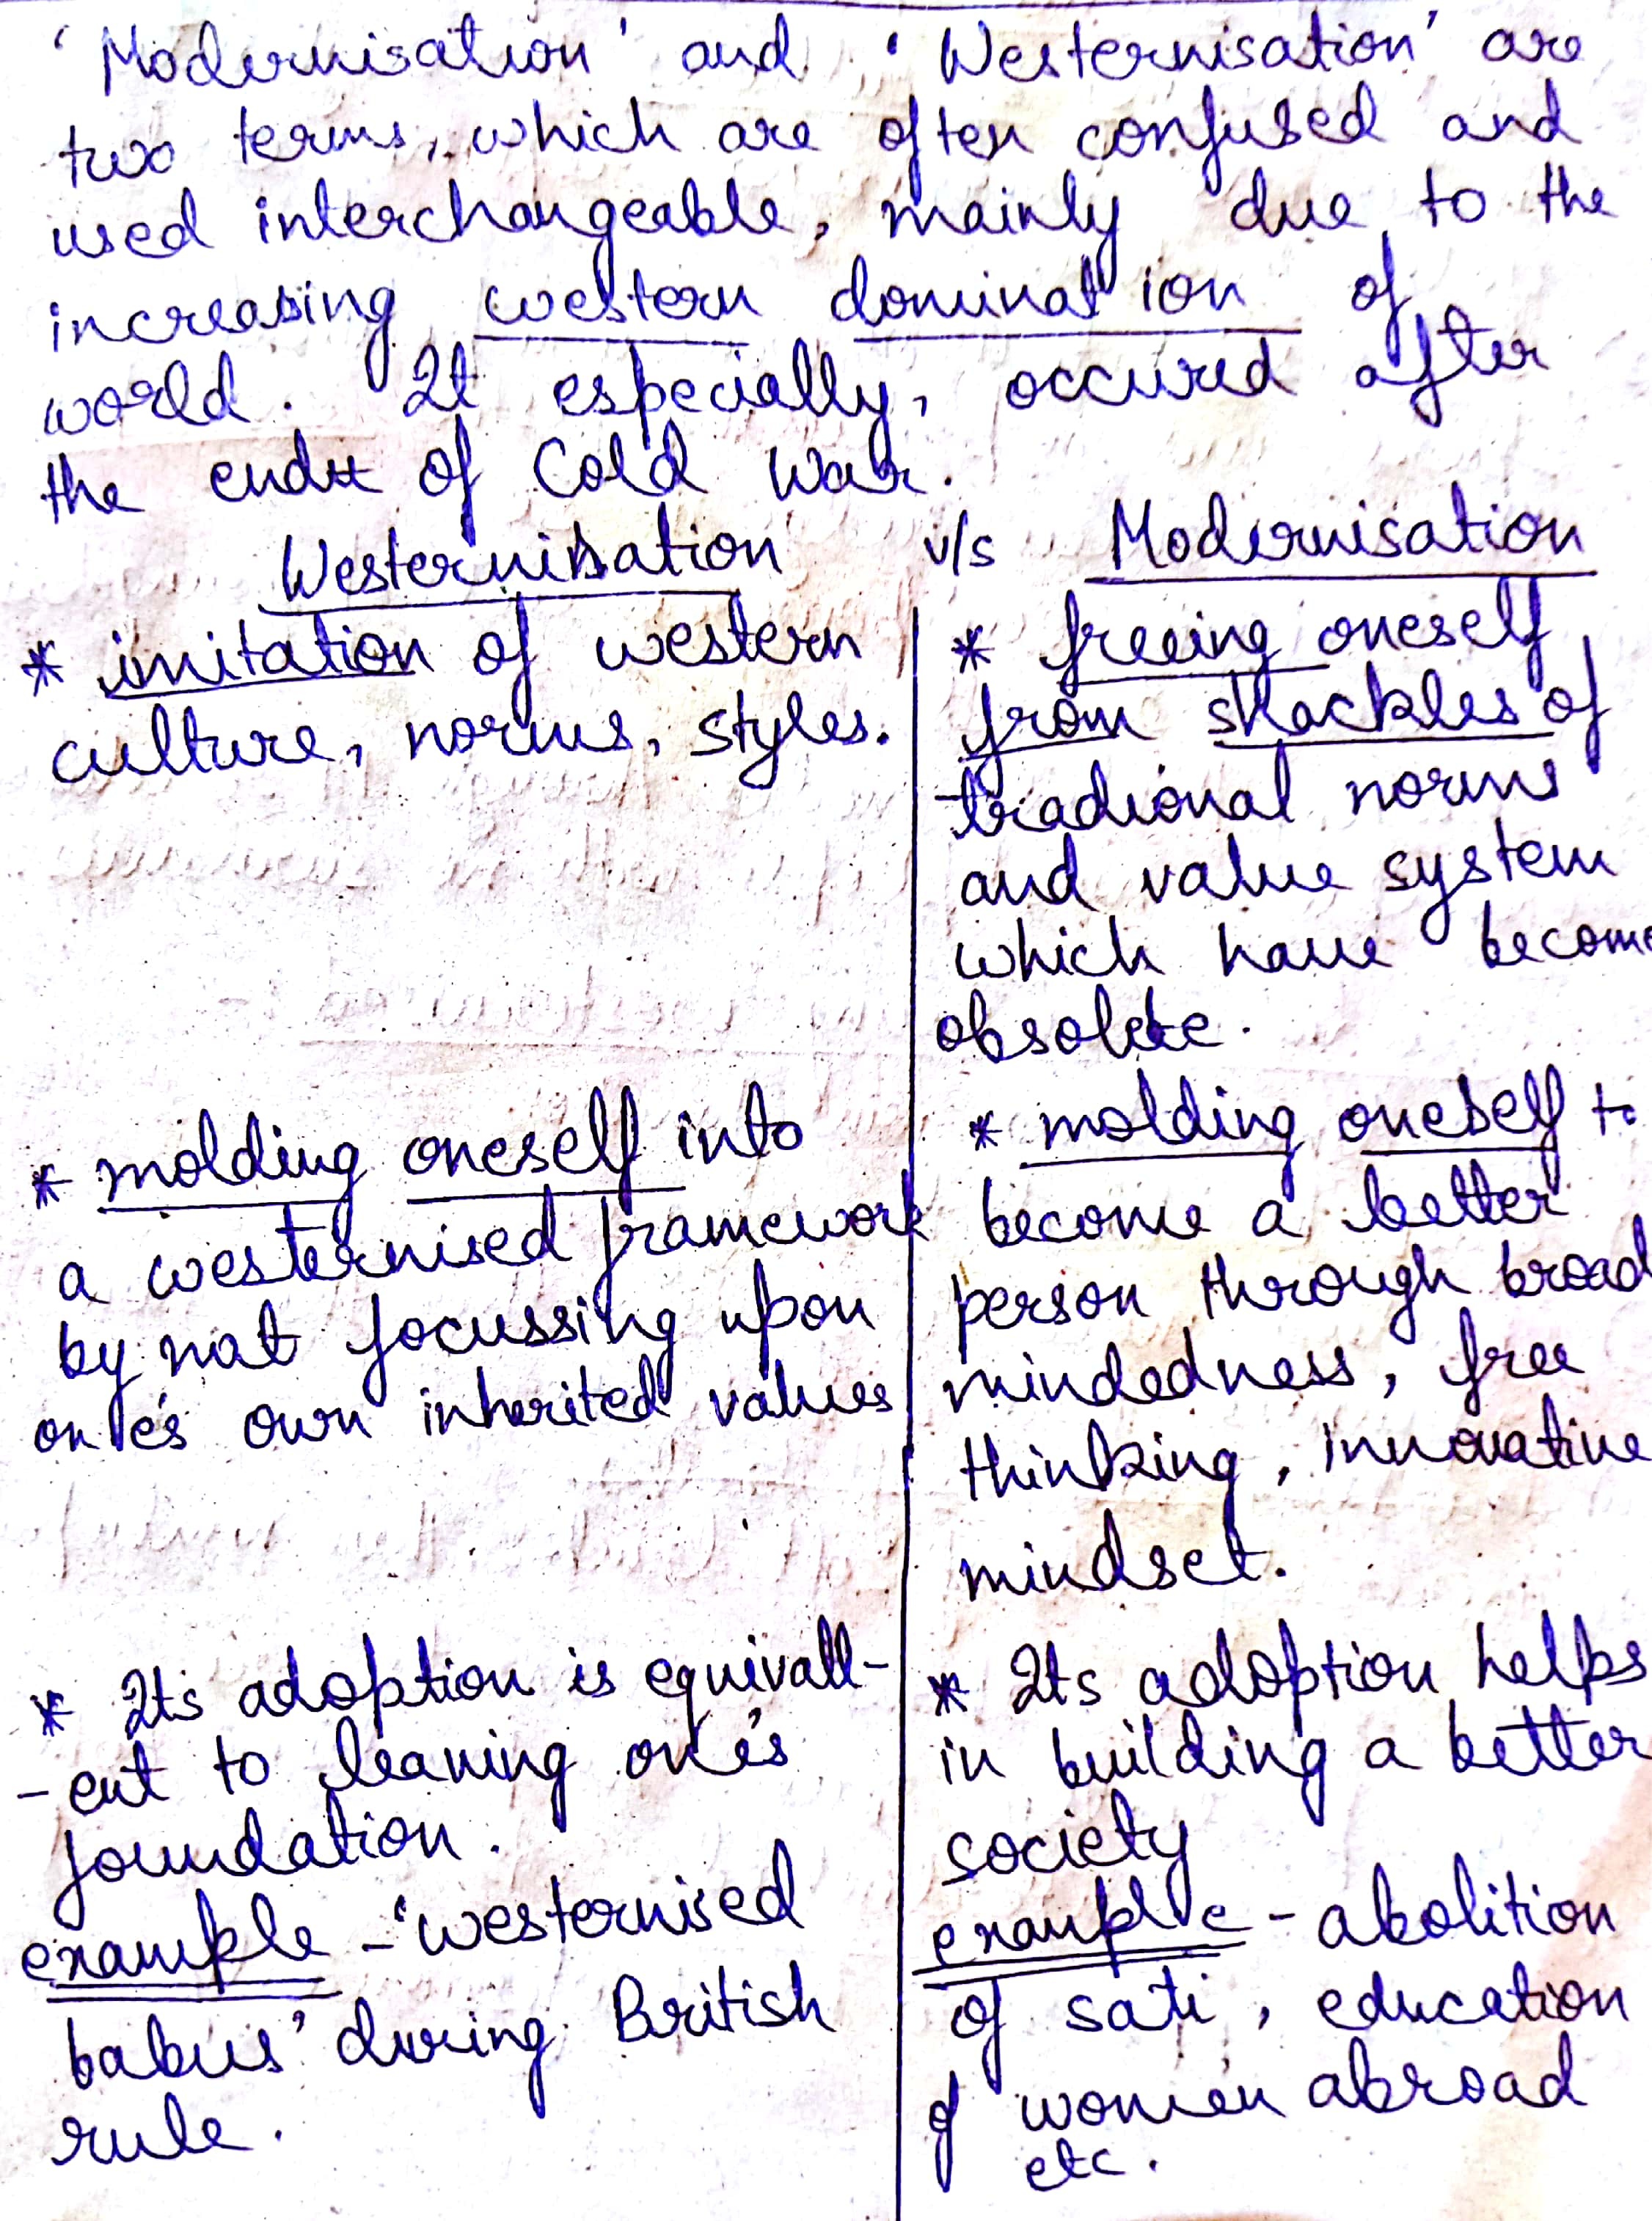 'Modernisation' and 'Westernisation' are
two terms, which are often confused and
used interchangeable, mainly due to the
increasing western domination of
world. It especially, occured after
the end of Cold War.
Westernisation v/s Modernisation
* imitation of western
culture, norms, styles.
* molding oneself into
a westernised framework
by not focussing upon
one's own inherited values
* Its adoption is equivall-
-ent to leaving one's
foundation.
example - 'westernised
babus' during British
rule.
* freeing oneself
from shackles of
tradional norms
and value system
which have become
obsolete.
* molding oneself to
become a better
person through broad
mindedness, free
thinking, innovative
mindset.
* Its adoption helps
in building a better
society
example - abolition
of sati, education
of women abroad
etc.